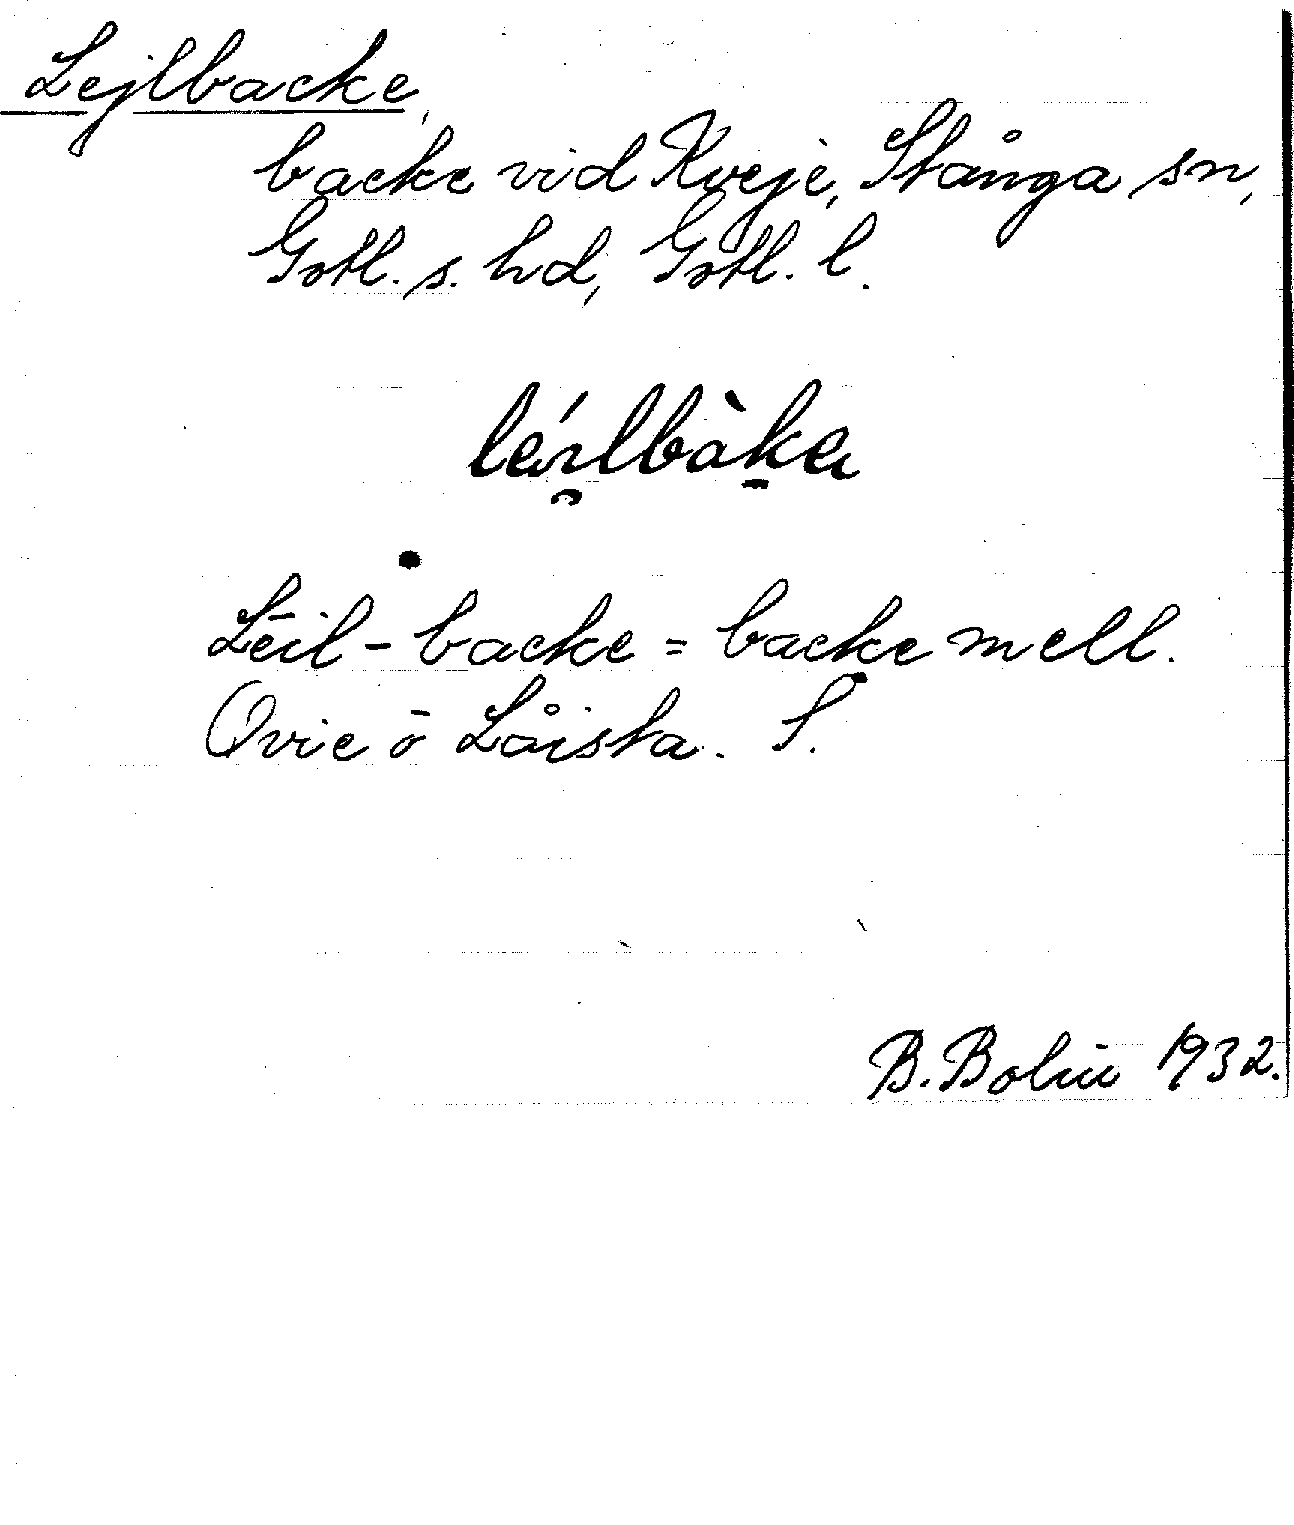 Lejlbacke,
backe vid Kveje, Stånga sn,
Gotl. s. hd, Gotl. l.
Lēil-backe = backe mell.
Qvie ō Låista. S.
B. Bolin 1932.